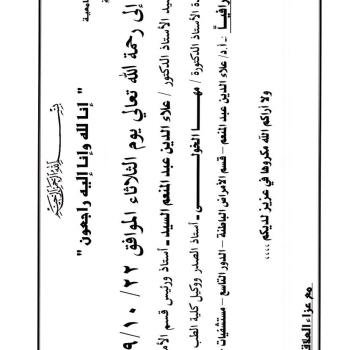 بسم الله الرحمن الرحيم
" إنا لله وإنا إليه راجعون "
إلى رحمة الله تعالي يوم الثلاثاء الموافق ٢٢ / ١٠ / ٩
الأستاذ الدكتور / علاء الدين عبد المنعم السيد ـ أستاذ ورئيس قسم
الأستاذة الدكتورة / مها الخولي ـ أستاذ الصدر ووكيل كلية الطب
أ.د/ علاء الدين عبد المنعم - قسم الأمراض الباطنة - الدور التاسع - مستشفيات
ولا أراكم الله مكروها في عزيز لديكم ،،،،
مع عزاء